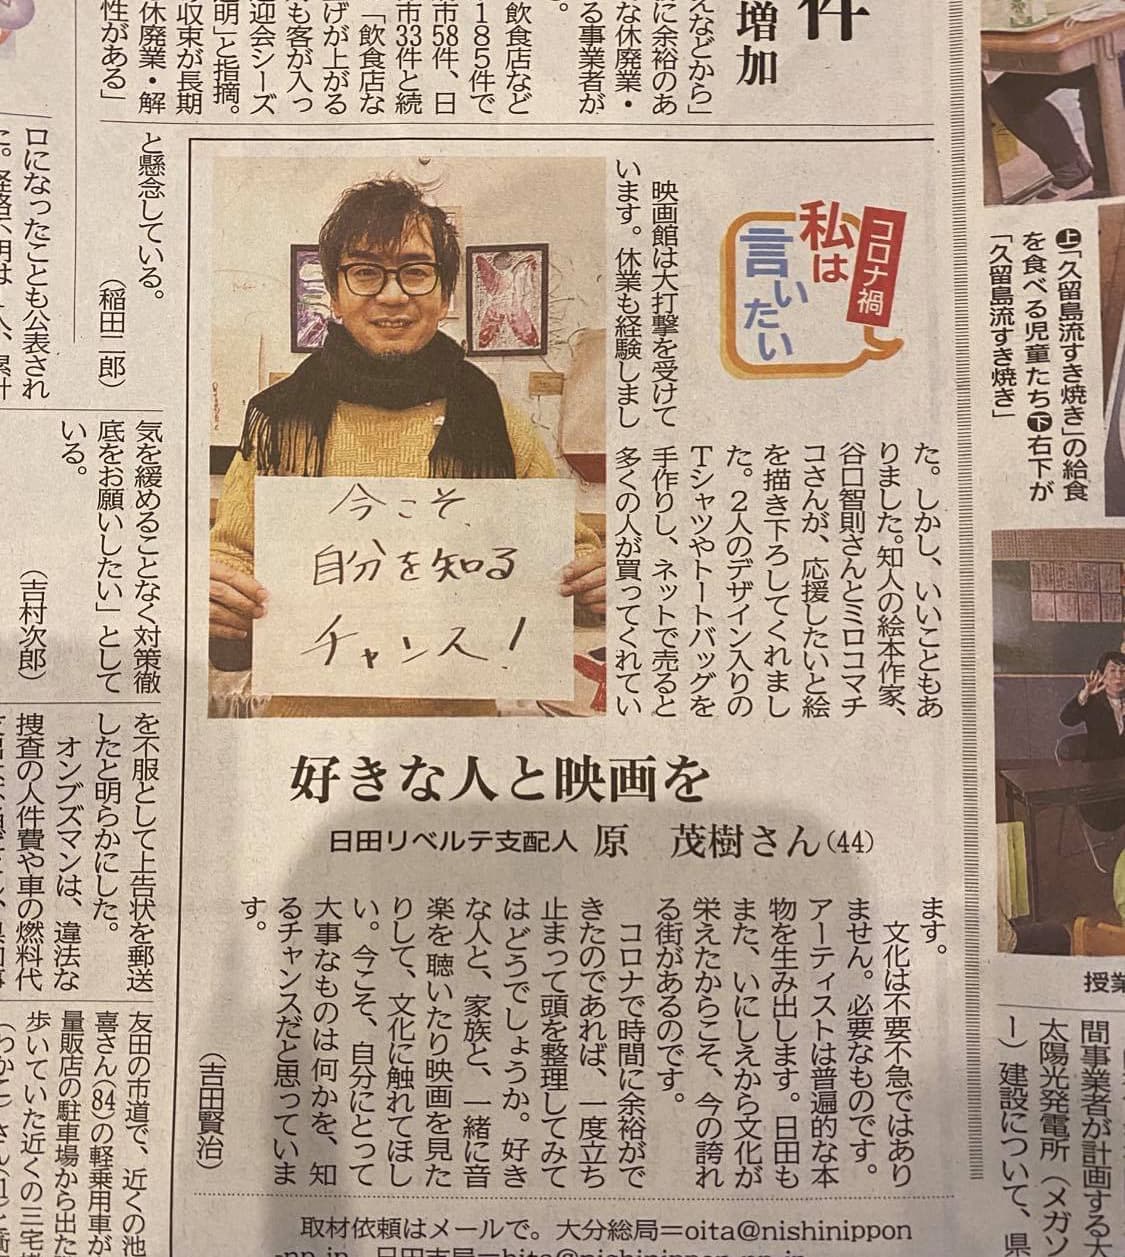 件
増加
えなどから」
に余裕のあ
な休廃業・
る事業者が
。
飲食店など
185件で
市58件、日
市33件と続
「飲食店な
げが上がる
も客が入っ
迎会シーズ
明」と指摘。
収束が長期
休廃業・解
性がある」
と懸念している。
（稲田二郎）
口になったことも公表され
コロナ禍
私は
言いたい
映画館は大打撃を受けて
います。休業も経験しまし
た。しかし、いいこともあ
りました。知人の絵本作家、
谷口智則さんとミロコマチ
コさんが、応援したいと絵
を描き下ろしてくれまし
た。2人のデザイン入りの
Tシャツやトートバッグを
手作りし、ネットで売ると
多くの人が買ってくれてい
今こそ、
自分を知る
チャンス！
好きな人と映画を
日田リベルテ支配人 原　茂樹さん（44）
ます。
文化は不要不急ではあり
ません。必要なものです。
アーティストは普遍的な本
物を生み出します。日田も
また、いにしえから文化が
栄えたからこそ、今の誇れ
る街があるのです。
コロナで時間に余裕がで
きたのであれば、一度立ち
止まって頭を整理してみて
はどうでしょうか。好き
な人と、家族と、一緒に音
楽を聴いたり映画を見た
りして、文化に触れてほし
い。今こそ、自分にとって
大事なものは何かを、知
るチャンスだと思っていま
す。
（吉田賢治）
取材依頼はメールで。大分総局＝oita@nishinippon
上「久留島流すき焼き」の給食
を食べる児童たち下右下が
「久留島流すき焼き」
授業
間事業者が計画する大
太陽光発電所（メガソ
ー）建設について、県
気を緩めることなく対策徹
底をお願いしたい」として
いる。
（吉村次郎）
を不服として上告状を郵送
したと明らかにした。
オンブズマンは、違法な
捜査の人件費や車の燃料代
友田の市道で、近くの池
喜さん（84）の軽乗用車が
量販店の駐車場から出た
歩いていた近くの三宅